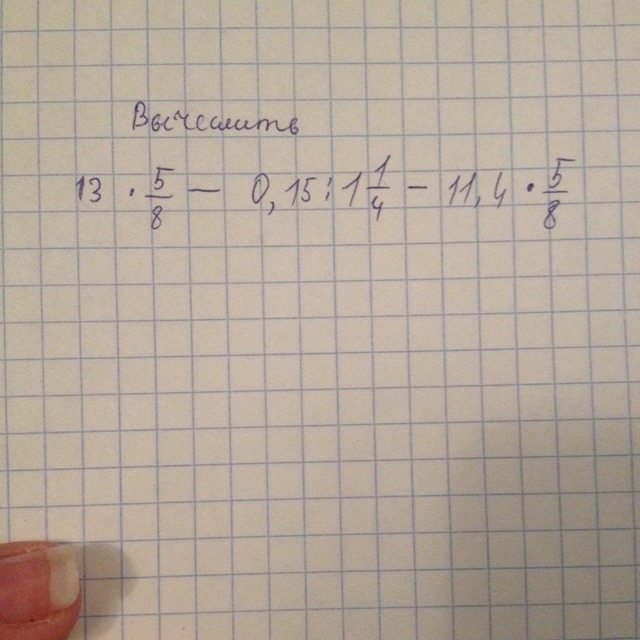 Вычеслить
13 · 5/8 — 0,15 : 1 1/4 — 11,4 · 5/8